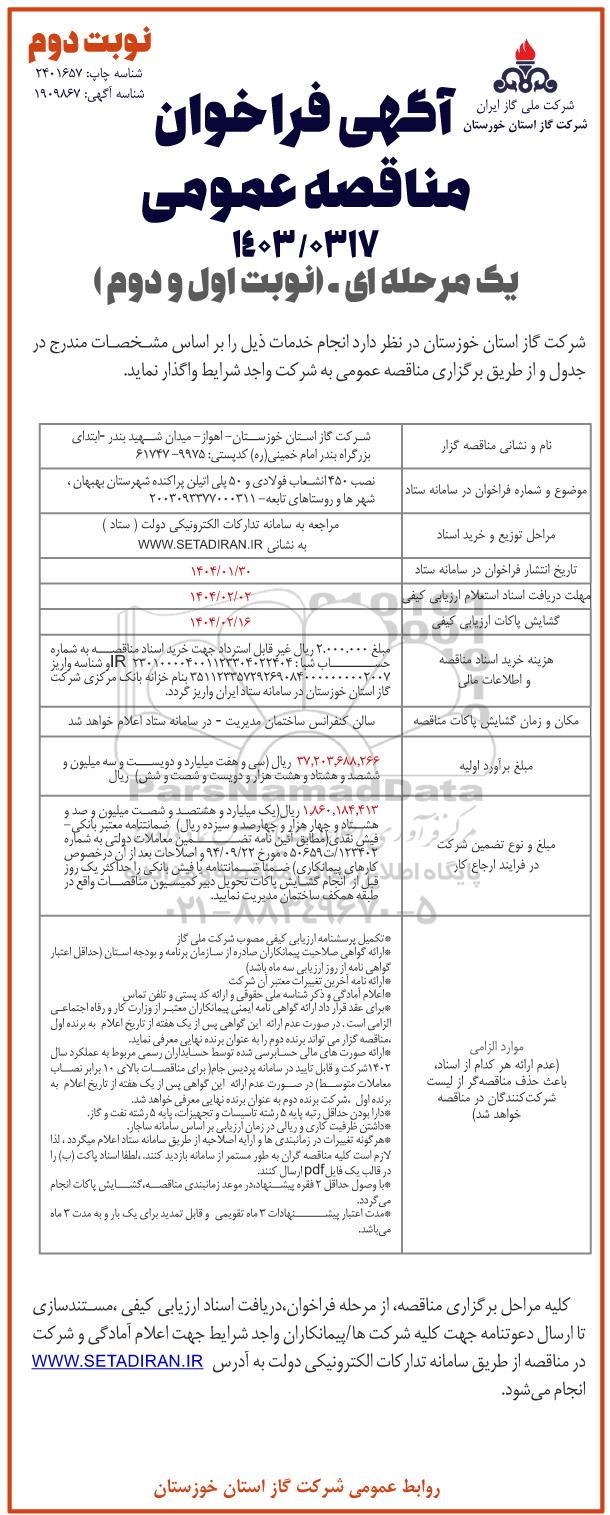 نوبت دوم
شناسه چاپ: ۲۴۰۱۶۵۷
شناسه آگهی: ۱۹۰۹۸۶۷
شرکت ملی گاز ایران
شرکت گاز استان خوزستان
آگهی فراخوان
مناقصه عمومی
۱۴۰۳/۰۳۱۷
یک مرحله ای - (نوبت اول و دوم)
شرکت گاز استان خوزستان در نظر دارد انجام خدمات ذیل را بر اساس مشخصات مندرج در
جدول و از طریق برگزاری مناقصه عمومی به شرکت واجد شرایط واگذار نماید.
نام و نشانی مناقصه گزار
شرکت گاز استان خوزستان- اهواز- میدان شهید بندر -ابتدای
بزرگراه بندر امام خمینی(ره) کدپستی: ۹۹۷۵- ۶۱۷۴۷
موضوع و شماره فراخوان در سامانه ستاد
نصب ۴۵۰ انشعاب فولادی و ۵۰ پلی اتیلن پراکنده شهرستان بهبهان ،
شهر ها و روستاهای تابعه- ۲۰۰۳۰۹۳۳۷۷۰۰۰۳۱۱
مراحل توزیع و خرید اسناد
مراجعه به سامانه تدارکات الکترونیکی دولت ( ستاد )
به نشانی WWW.SETADIRAN.IR
تاریخ انتشار فراخوان در سامانه ستاد
۱۴۰۴/۰۱/۳۰
مهلت دریافت اسناد استعلام ارزیابی کیفی
۱۴۰۴/۰۲/۰۲
گشایش پاکات ارزیابی کیفی
۱۴۰۴/۰۲/۱۶
هزینه خرید اسناد مناقصه
و اطلاعات مالی
مبلغ ۲.۰۰۰.۰۰۰ ریال غیر قابل استرداد جهت خرید اسناد مناقصه به شماره
حساب شبا: ۲۳۰۱۰۰۰۰۴۰۰۱۱۲۳۳۰۴۰۲۲۴۰۴ IRو شناسه واریز
۳۵۱۱۲۳۳۵۷۲۹۲۶۹۰۸۴۰۰۰۰۰۰۰۰۰۲۰۰۷ بنام خزانه بانک مرکزی شرکت
گاز استان خوزستان در سامانه ستاد ایران واریز گردد.
مکان و زمان گشایش پاکات مناقصه
سالن کنفرانس ساختمان مدیریت - در سامانه ستاد اعلام خواهد شد
مبلغ برآورد اولیه
۳۷,۲۰۳,۶۸۸,۲۶۶ ریال (سی و هفت میلیارد و دویست و سه میلیون و
ششصد و هشتاد و هشت هزار و دویست و شصت و شش) ریال
مبلغ و نوع تضمین شرکت
در فرایند ارجاع کار
۱,۸۶۰,۱۸۴,۴۱۳ ریال(یک میلیارد و هشتصد و شصت میلیون و صد و
هشتاد و چهار هزار و چهارصد و سیزده ریال) ضمانتنامه معتبر بانکی-
فیش نقدی(مطابق آئین نامه تضمین معاملات دولتی به شماره
۱۲۳۴۰۲/ت۵۰۶۵۹ه مورخ ۹۴/۰۹/۲۲ و اصلاحات بعد از آن درخصوص
کارهای پیمانکاری) ضمنا ضمانتنامه یا فیش بانکی را حداکثر یک روز
قبل از انجام گشایش پاکات تحویل دبیرکمیسیون مناقصات واقع در
طبقه همکف ساختمان مدیریت نمایید.
موارد الزامی
(عدم ارائه هر کدام از اسناد،
باعث حذف مناقصه‌گر از لیست
شرکت‌کنندگان در مناقصه
خواهد شد)
*تکمیل پرسشنامه ارزیابی کیفی مصوب شرکت ملی گاز
*ارائه گواهی صلاحیت پیمانکاران صادره از سازمان برنامه و بودجه استان (حداقل اعتبار
گواهی نامه از روز ارزیابی سه ماه باشد)
*ارائه نامه آخرین تغییرات معتبر آن شرکت
*اعلام آمادگی و ذکر شناسه ملی حقوقی و ارائه کد پستی و تلفن تماس
*برای عقد قرار داد ارائه گواهی نامه ایمنی پیمانکاران معتبر از وزارت کار و رفاه اجتماعی
الزامی است . در صورت عدم ارائه این گواهی پس از یک هفته از تاریخ اعلام به برنده اول
،مناقصه گزار می تواند برنده دوم را به عنوان برنده نهایی معرفی نماید.
*ارائه صورت های مالی حسابرسی شده توسط حسابداران رسمی مربوط به عملکرد سال
۱۴۰۲شرکت و قابل تایید در سامانه پردیس جام(برای مناقصات بالای ۱۰ برابر نصاب
معاملات متوسط) در صورت عدم ارائه این گواهی پس از یک هفته از تاریخ اعلام به
برنده اول ،شرکت برنده دوم به عنوان برنده نهایی معرفی خواهد شد.
*دارا بودن حداقل رتبه پایه ۵ رشته تاسیسات و تجهیزات، پایه ۵ رشته نفت و گاز.
*داشتن ظرفیت کاری و ریالی در زمان ارزیابی بر اساس سامانه ساجار.
*هرگونه تغییرات در زمانبندی ها و ارایه اصلاحیه از طریق سامانه ستاد اعلام میگردد ، لذا
لازم است کلیه مناقصه گران به طور مستمر از سامانه بازدید کنند، .لطفا اسناد پاکت (ب) را
در قالب یک فایلpdf ارسال کنند.
*با وصول حداقل ۲ فقره پیشنهاد،در موعد زمانبندی مناقصه،گشایش پاکات انجام
می‌گردد.
*مدت اعتبار پیشنهادات ۳ ماه تقویمی و قابل تمدید برای یک بار و به مدت ۳ ماه
می‌باشد.
کلیه مراحل برگزاری مناقصه، از مرحله فراخوان،دریافت اسناد ارزیابی کیفی ،مستندسازی
تا ارسال دعوتنامه جهت کلیه شرکت ها/پیمانکاران واجد شرایط جهت اعلام آمادگی و شرکت
در مناقصه از طریق سامانه تدارکات الکترونیکی دولت به آدرس WWW.SETADIRAN.IR
انجام می‌شود.
روابط عمومی شرکت گاز استان خوزستان
ParsNamadData
۰۲۱-۸۸۳۴۹۶۷۰-۵